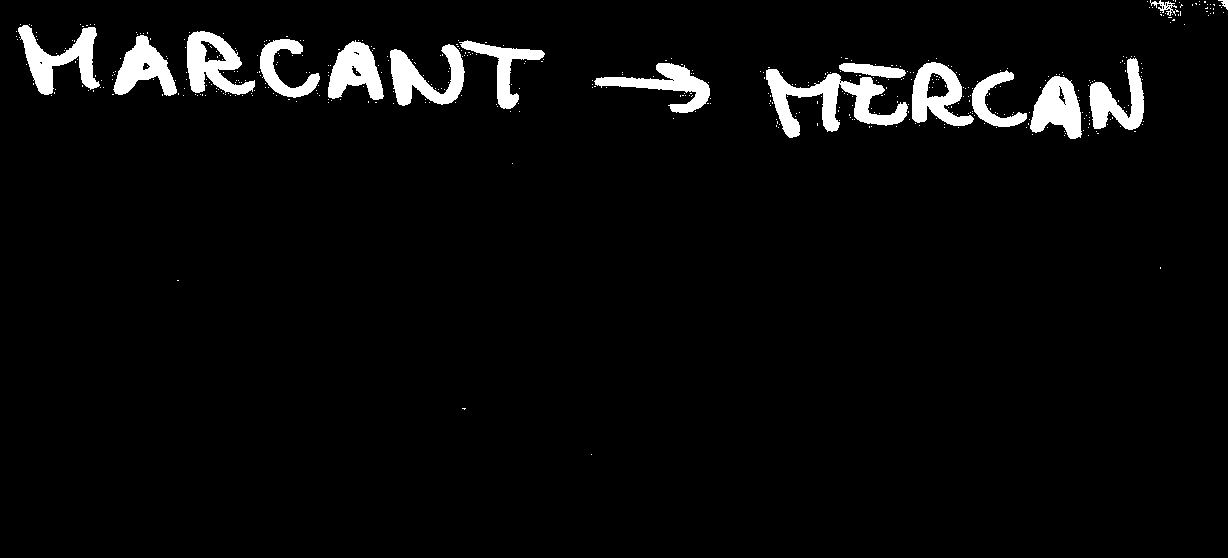 MARCANT → MERCAN